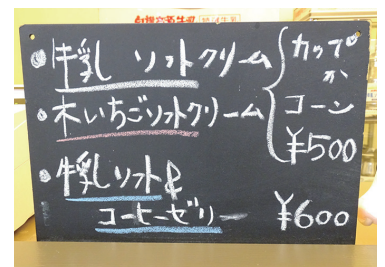 ・牛乳 ソフトクリーム
・木いちごソフトクリーム
カップ
か
コーン
¥500
・牛乳ソフト&
コーヒーゼリー ¥600